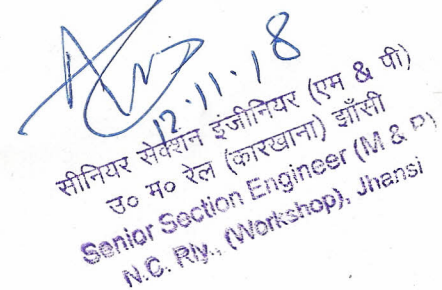 12.11.18
सीनियर सेक्शन इंजीनियर (एम & पी)
उ० म० रेल (कारखाना) झाँसी
Senior Section Engineer (M & P)
N.C. Rly., (Workshop), Jhansi